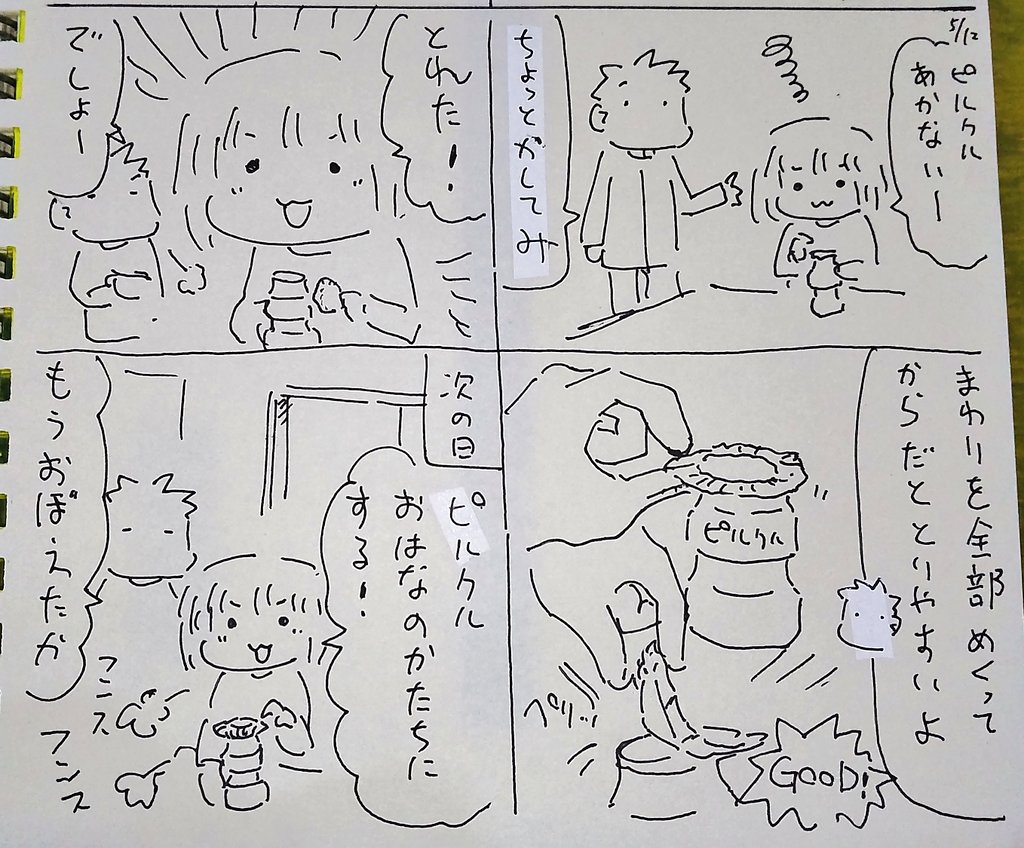 5/12
ピルクル
あかないー
ちょっとかしてみ
まわりを全部めくって
からだととりやすいよ
ピルクル
ペリッ
GOOD!
とれた!
でしょー
次の日
ピルクル
おはなのかたちに
する!
もうおぼえたか
フンス
フンス